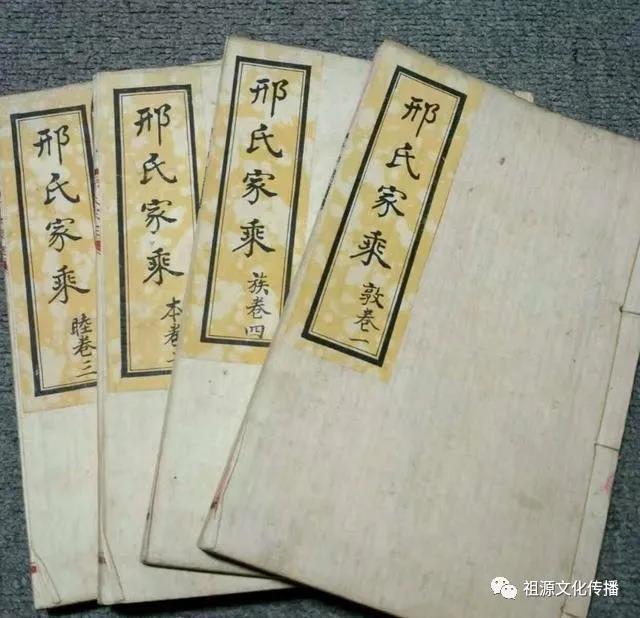 邢氏家乘
敦卷一
邢氏家乘
族卷四
邢氏家乘
本卷
邢氏家乘
睦卷三
祖源文化传播